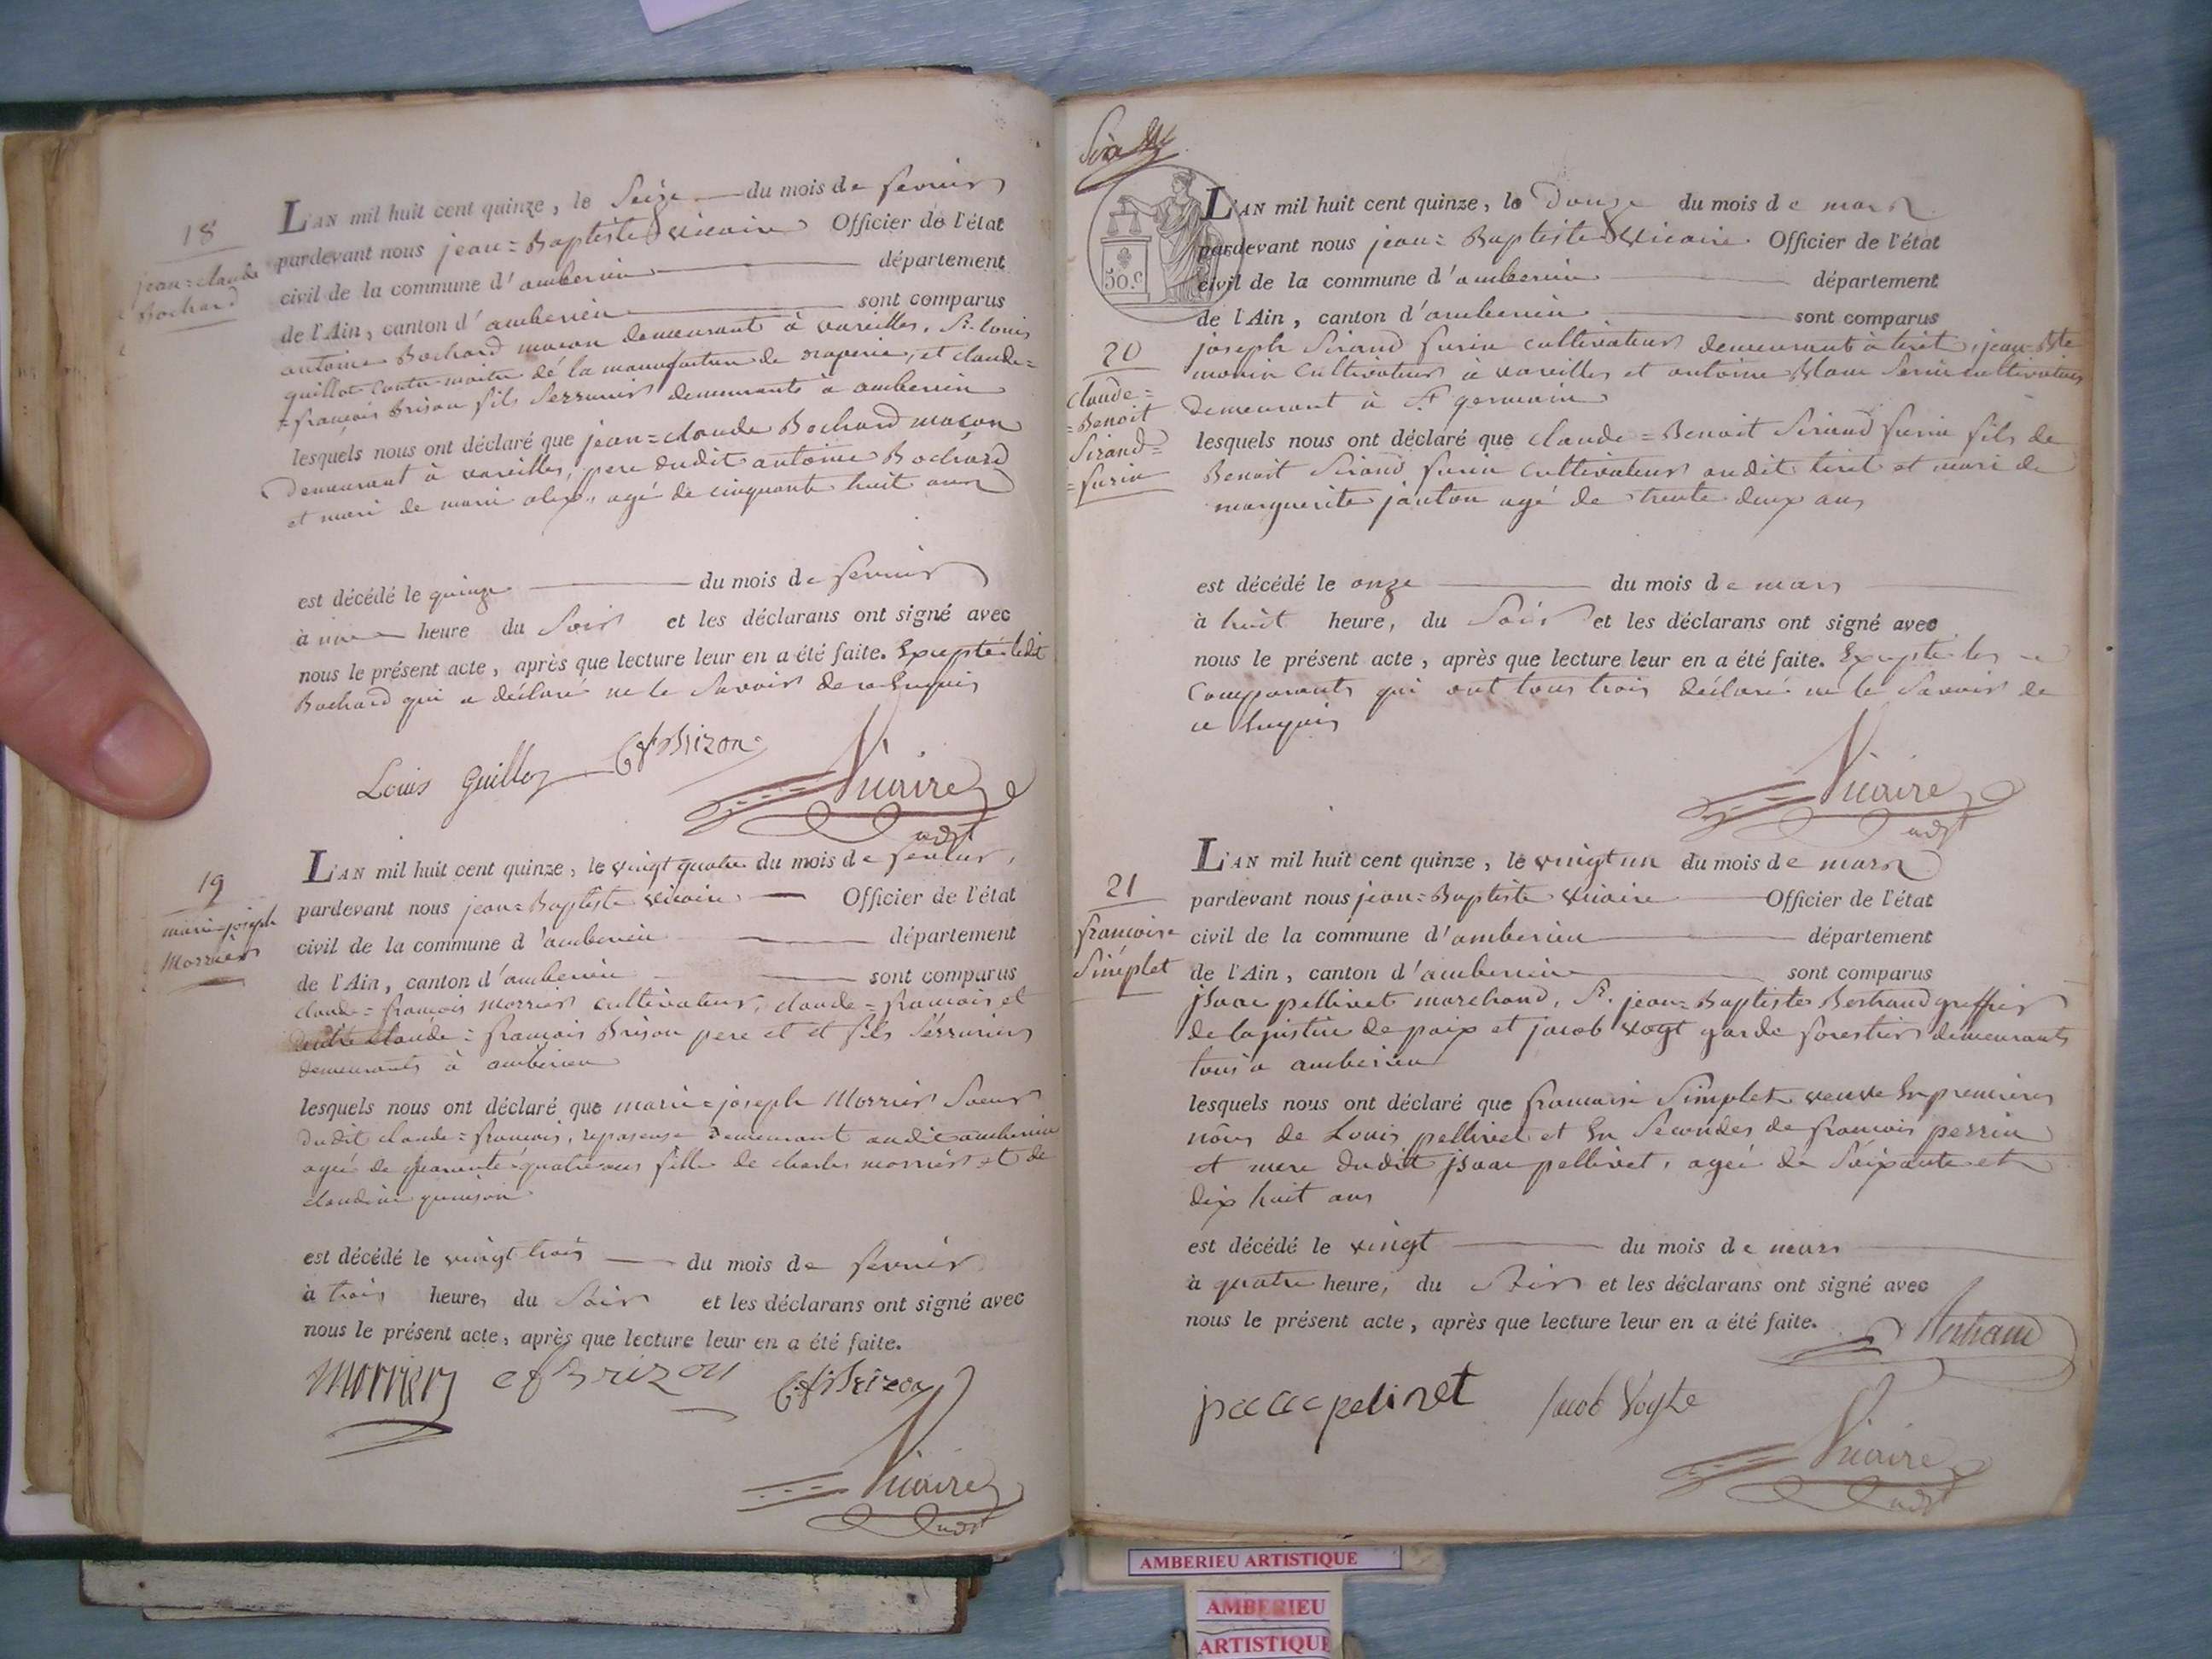 18
jean=claude
Bochard
L'AN mil huit cent quinze, le Seize du mois de fevrier
pardevant nous jean=Baptiste Vicaire Officier de l'état
civil de la commune d'amberieu département
de l'Ain, canton d'amberieu sont comparus
antoine Bochard maçon demeurant à vareilles, Sr. louis
guillot contre-maitre de la manufacture de draperie, et claude=
=françois Brison fils Serrurier demeurants à amberieu
lesquels nous ont déclaré que jean=claude Bochard maçon
demeurant à vareilles, pere dudit antoine Bochard
et mari de marie alex, agé de cinquante huit ans
est décédé le quinze du mois de fevrier
à une heure du Soir et les déclarans ont signé avec
nous le présent acte, après que lecture leur en a été faite. Excepté ledit
Bochard qui a déclaré ne le Savoir de ce Enquis
Louis Guillot Cf Brizon
Vicaire
adjt
19
marie=joseph
Morrier
L'AN mil huit cent quinze, le vingt quatre du mois de fevrier,
pardevant nous jean=Baptiste Vicaire Officier de l'état
civil de la commune d'amberieu département
de l'Ain, canton d'amberieu sont comparus
claude=françois Morrier cultivateur, claude=françois et
autre claude=françois Brison pere et et fils Serruriers
demeurants à amberieu
lesquels nous ont déclaré que marie=joseph Morrier Soeur
dudit claude=françois, repaseuse demeurant audit amberieu
agée de quarante quatre ans fille de charles morrier et de
claudine
est décédé le vingt trois du mois de fevrier
à trois heures du Soir et les déclarans ont signé avec
nous le présent acte, après que lecture leur en a été faite.
Morrier cf Brizon Cf Brizon
Vicaire
adjt
50.c
L'AN mil huit cent quinze, le Douze du mois de mars
pardevant nous jean=Baptiste Vicaire Officier de l'état
civil de la commune d'amberieu département
de l'Ain, canton d'amberieu sont comparus
20
claude=
=Benoit
Sirand=
=furin
joseph Sirand furin cultivateur demeurant à tiret, jean Bte
morin cultivateur à vareilles et antoine Blanc Serin cultivateur
demeurant à St germain
lesquels nous ont déclaré que claude=Benoit Sirand furin fils de
Benoit Sirand furin cultivateur audit tiret et mari de
marguerite janton agé de trente deux ans
est décédé le onze du mois de mars
à huit heure, du Soir et les déclarans ont signé avec
nous le présent acte, après que lecture leur en a été faite. Excepté les
Comparants qui ont tous trois déclaré ne le Savoir de
ce Enquis
Vicaire
adjt
21
francoise
Simplet
L'AN mil huit cent quinze, le vingt un du mois de mars
pardevant nous jean=Baptiste Vicaire Officier de l'état
civil de la commune d'amberieu département
de l'Ain, canton d'amberieu sont comparus
jsaac pellivet marchand, Sr. jean=Baptiste Bertrand greffier
de la justice de paix et jacob vogt garde forestier demeurants
tous à amberieu
lesquels nous ont déclaré que francoise Simplet veuve En premieres
nôces de Louis pellivet et En Secondes de francois perrin
et mere dudit jsaac pellivet, agée de Soixante et
dix huit ans
est décédé le vingt du mois de mars
à quatre heure, du Soir et les déclarans ont signé avec
nous le présent acte, après que lecture leur en a été faite.
Bertrand
Jacob Vogte
Vicaire
adjt
AMBERIEU ARTISTIQUE
AMBERIEU
ARTISTIQUE